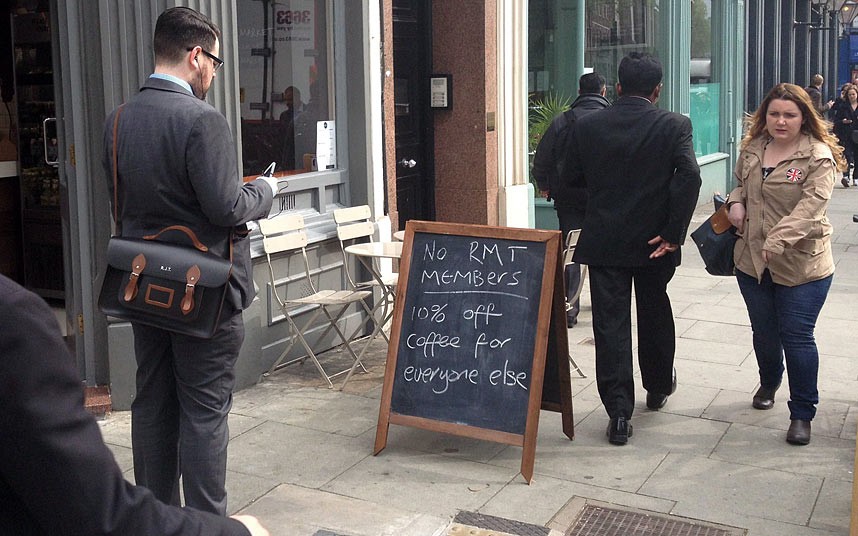 3663
No RMT
MEMBERS
10% off
coffee for
everyone else
R.J.T.